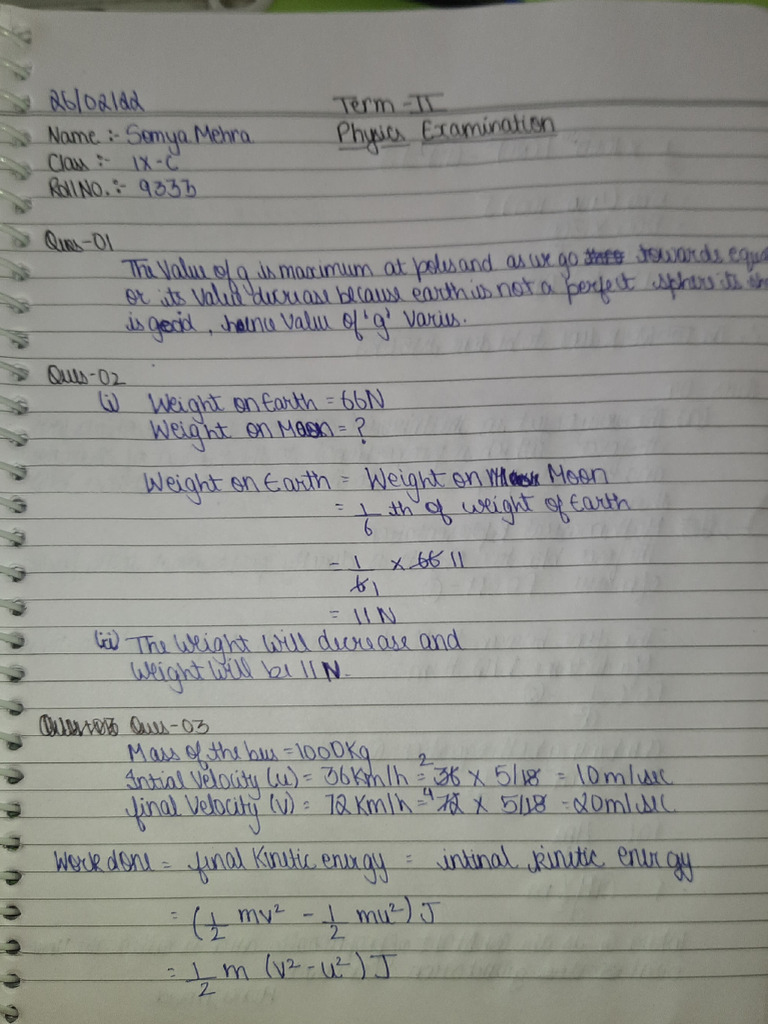 26/02/22
Term-II
Name :- Somya Mehra
Physics Examination
Class :- IX-C
Roll No. :- 9333
Ques-01
The Value of g is maximum at poles and as we go towards equa
or its value decrease because earth is not a perfect sphere its
is geoid, hence Value of 'g' Varies.
Ques-02
(i) Weight on Earth = 66N
Weight on Moon = ?
Weight on Earth = Weight on Moon
= 1/6 th of weight of Earth
= 1/6 1 × 66 11
= 11N
(ii) The Weight Will decrease and
Weight Will be 11N.
Ques-03
Mass of the bus = 1000Kg
Intial Velocity (u) = 36Km/h = 36 2 × 5/18 = 10m/sec
final Velocity (v) = 72Km/h = 72 4 × 5/18 = 20m/sec
Work done = final Kinetic energy = intinal kinetic energy
= (1/2 mv² - 1/2 mu²) J
= 1/2 m (v² - u²) J